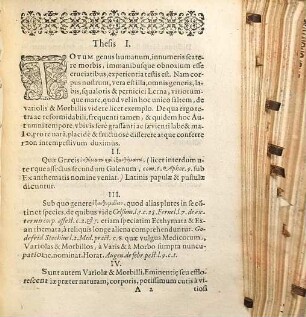 Thesis I.
TOTUM genus humanum, innumeris scate-
re morbis, immanibusque obnoxium esse
cruciatibus, experientia testis est. Nam cor-
pus nostrum, vera est illa, omnis generis, la-
bis, squaloris & perniciei Lerna, vitiorum-
que mare, quod vel in hoc unico saltem, de
Variolis & Morbillis videre licet exemplo. De qua ergo te-
terra ac reformidabili, frequenti tamen, & quidem hoc Au-
tumni tempore, vobis fere grassari ac sævienti labe & ma-
lo, pro re nata, placidè & strictius disserere atque conferre
non intempestivum duximus.
II.
Quæ Græcis (licet interdum u-
terque affectus secundum Galenum, com. 3. Aphor. 9. sub
Exanthematis nomine veniat.) Latinis papulæ & pustulæ
dicuntur.
III.
Sub quo genere quod alias plures in se con-
tinet species, de quibus vide Celsum l. 5. c. 28. Fernel. l. 7. de ex-
tern. corp. affect. c. 5. & 23. etiam speciatim Ecthymata & Ex-
anthemata, à reliquis longe aliena comprehenduntur. God-
defrid Stechius l. 2. Med. pract. c. 8. quæ vulgus Medicorum,
Variolas & Morbillos, à Varis & à Morbo sumpta nuncu-
patione ac nominat. Horat. Augen. de febr. pest. l. 9. c. 1.
IV.
Sunt autem Variolæ & Morbilli, Eminentiæ seu efflo-
rescentiæ præter naturam, corporis, potissimum cutis à vi-
A 2 tiosa